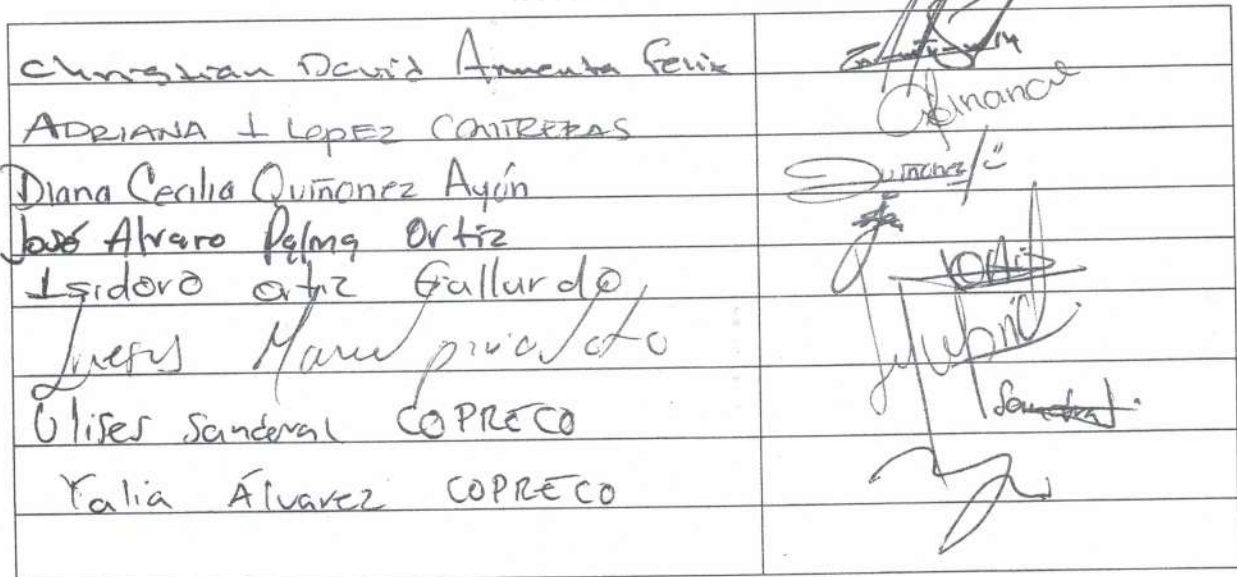 Christian David Armenta Felix
ADRIANA I LOPEZ CONTRERAS
Diana Cecilia Quiñonez Ayón
Quiñonez
José Alvaro Palma Ortiz
Isidoro ortiz Gallurdo
Ortiz
Jesus Manuel
Ulises Sandoval COPRECO
Sandoval
Yalia Álvarez COPRECO